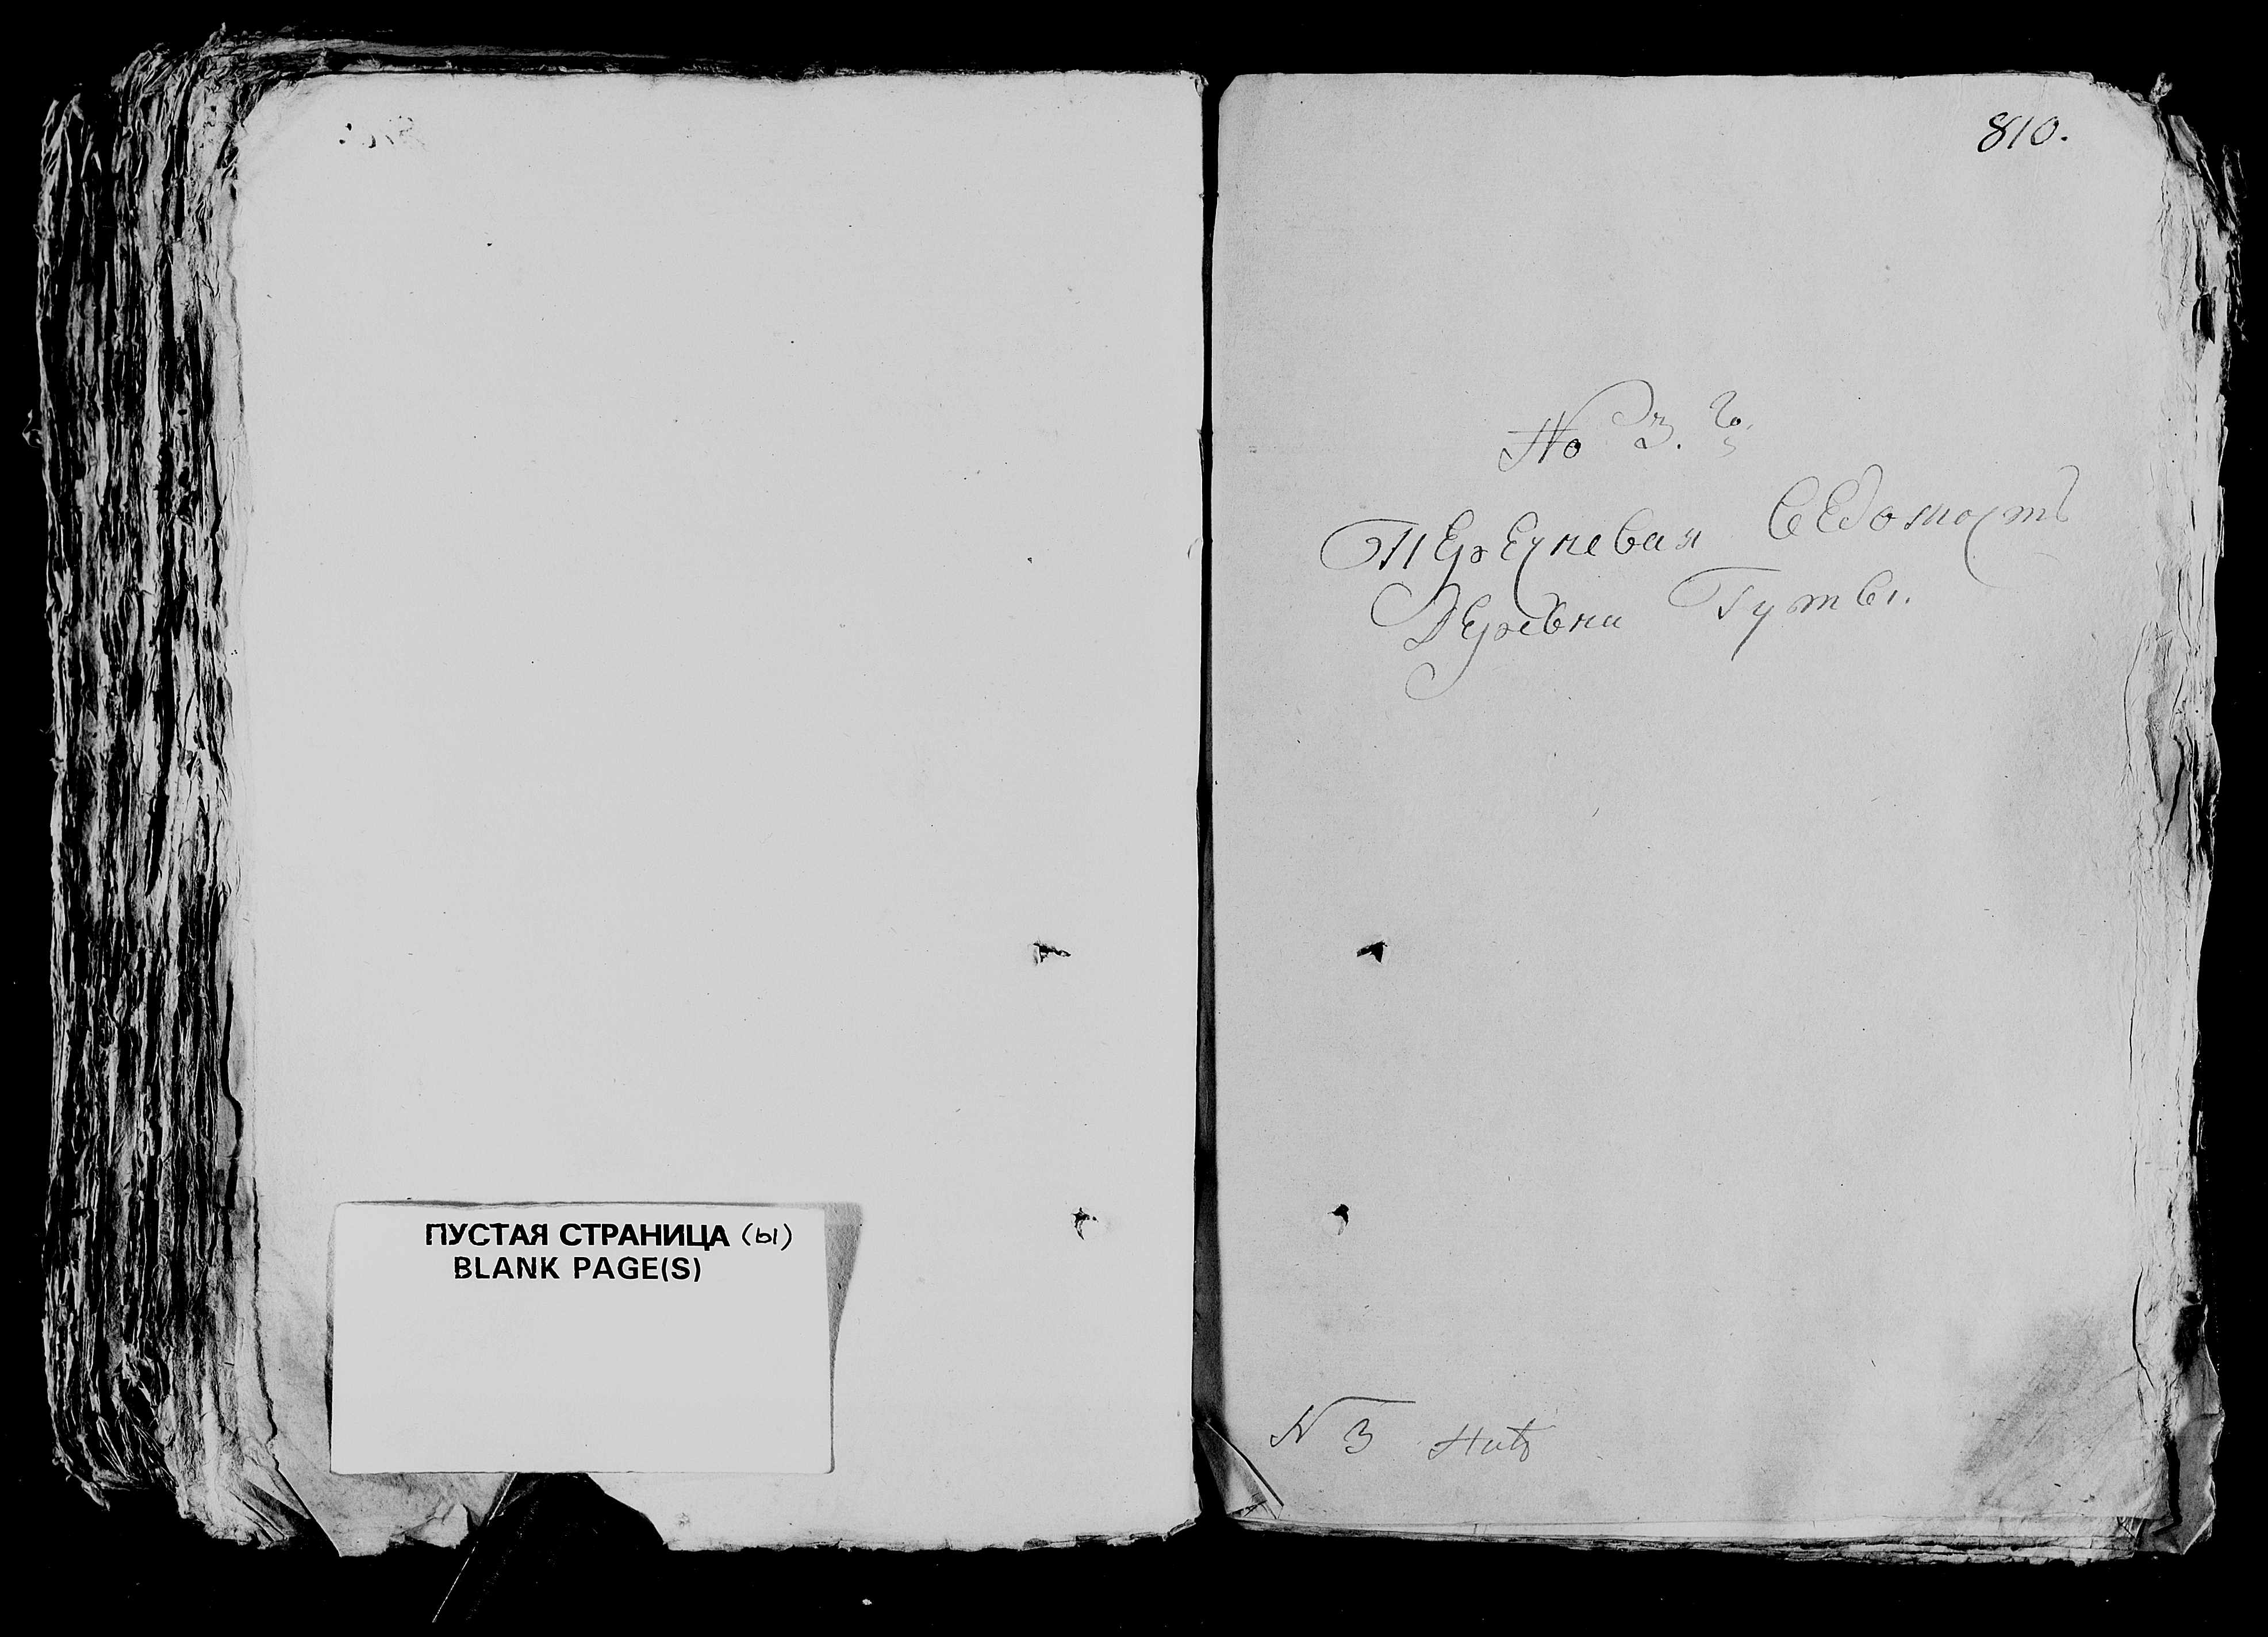 ПУСТАЯ СТРАНИЦА (ы)
BLANK PAGE(S)
810.
No 3. го
Перечневая Ведомость
Деревни Гуты.
N 3